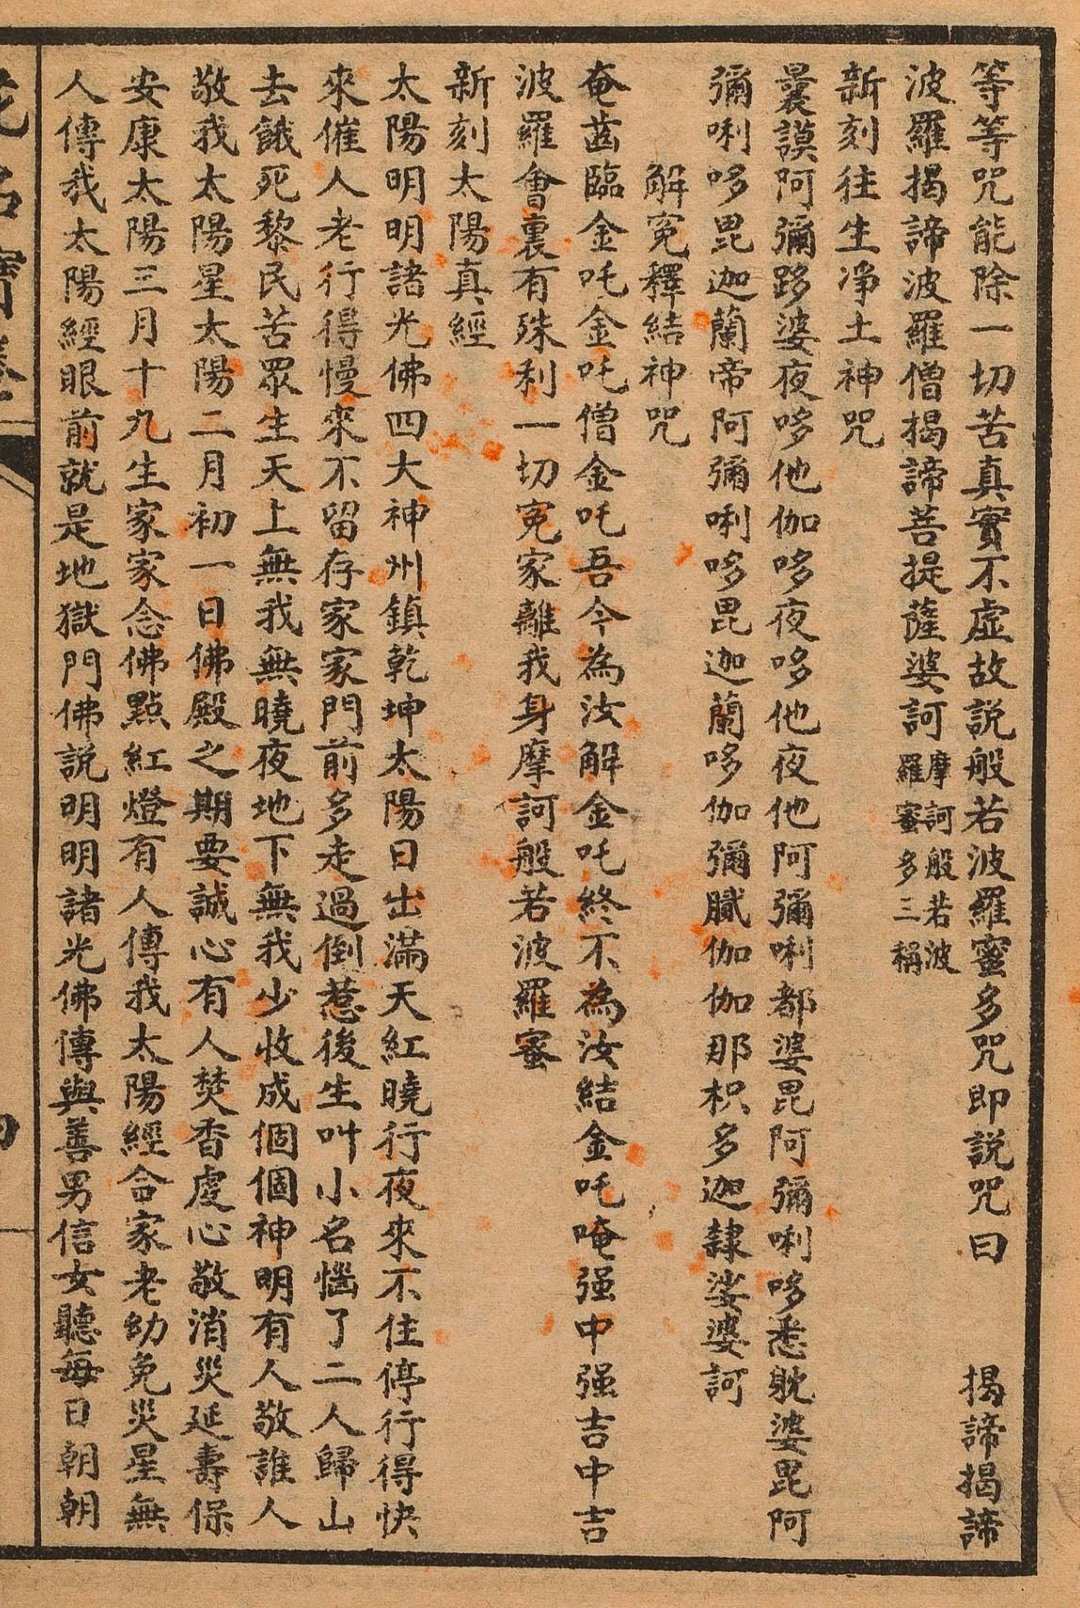 等等咒能除一切苦真實不虛故說般若波羅蜜多咒即說咒曰　揭諦揭諦
波羅揭諦波羅僧揭諦菩提薩婆訶
摩訶般若波
羅蜜多三稱
新刻往生淨土神咒
曩謨阿彌哆婆夜哆他伽哆夜哆他夜他阿彌唎都婆毘阿彌唎哆悉躭婆毘阿
彌唎哆毘迦蘭帝阿彌唎哆毘迦蘭哆伽彌膩伽伽那枳多迦隸娑婆訶
解冤釋結神咒
奄齒臨金吒金吒僧金吒吾今為汝解金吒終不為汝結金吒唵强中强吉中吉
波羅會裏有殊利一切冤家離我身摩訶般若波羅蜜
新刻太陽真經
太陽明明諸光佛四大神州鎮乾坤太陽日出滿天紅曉行夜來不住停行得快
來催人老行得慢來不留存家家門前多走過倒惹後生叫小名惱了二人歸山
去餓死黎民苦眾生天上無我無曉夜地下無我少收成個個神明有人敬誰人
敬我太陽星太陽二月初一日佛殿之期要誠心有人焚香虔心敬消災延壽保
安康太陽三月十九生家家念佛點紅燈有人傳我太陽經合家老幼免災星無
人傳我太陽經眼前就是地獄門佛說明明諸光佛傳與善男信女聽每日朝朝